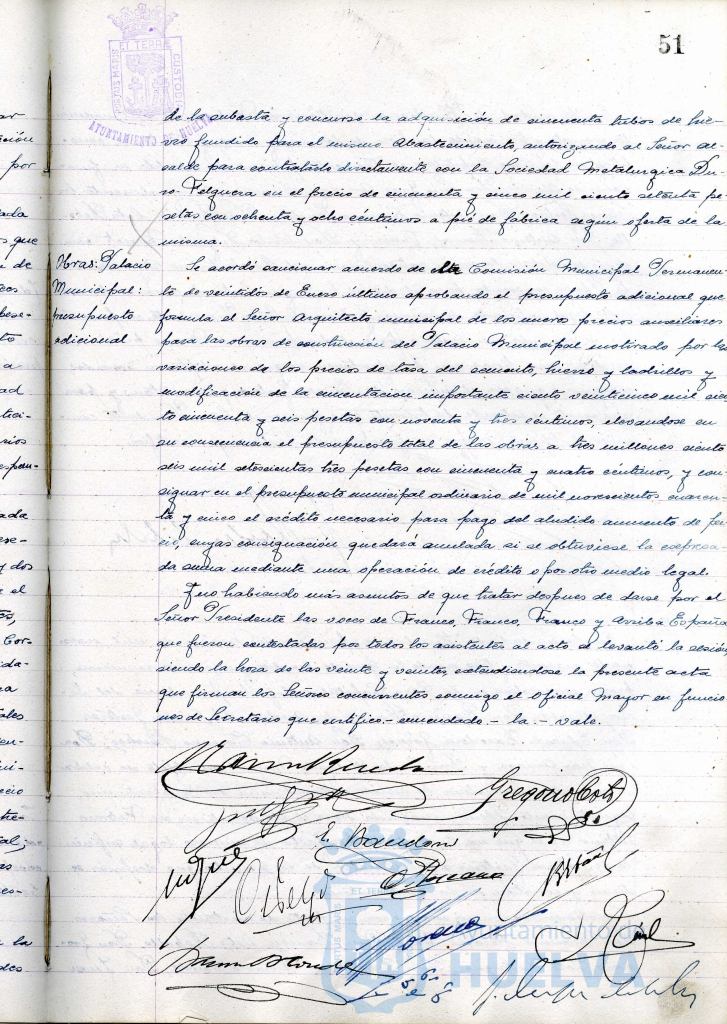 51
PORTUS MARIS ET TERRE CUSTODIA
AYUNTAMIENTO DE HUELVA
de la subasta y concurso la adquisición de cincuenta tubos de hie-
rro fundido para el mismo Abastecimiento, autorizando al Señor Al-
calde para contratarlo directamente con la Sociedad Metalurgica Du-
ro-Felguera en el precio de cincuenta y cinco mil ciento setenta pe-
setas con ochenta y ocho centimos a pié de fábrica según oferta de la
misma.
Obras: Palacio
Municipal:
presupuesto
adicional
Se acordó sancionar acuerdo de la Comisión Municipal Permanen-
te de veintidos de Enero último aprobando el presupuesto adicional que
formula el Señor Arquitecto municipal de los nuevos precios auxiliares
para las obras de construcción del Palacio Municipal motivado por las
variaciones de los precios de tasa del cemento, hierro y ladrillos y
modificación de la cimentacion importante ciento veinticinco mil cien-
to cincuenta y seis pesetas con noventa y tres céntimos, elevandose en
su consecuencia el presupuesto total de las obras a tres millones ciento
seis mil setecientas tres pesetas con cincuenta y cuatro céntimos, y con-
signar en el presupuesto municipal ordinario de mil novecientos cuaren-
ta y cinco el crédito necesario para pago del aludido aumento de pre-
cio, cuyas consignación quedará anulada si se obtuviese la expresa-
da suma mediante una operación de crédito o por otro medio legal.
Y no habiendo más asuntos de que tratar despues de darse por el
Señor Presidente las voces de Franco, Franco, Franco y Arriba España
que fueron contestadas por todos los asistentes al acto se levantó la sesión
siendo la hora de las veinte y veinte, extendiendose la presente acta
que firman los Señores concurrentes conmigo el Oficial Mayor en funcio-
nes de Secretario que certifico.- enmendado.- la.- vale.
Gregorio
E.
Morano
Ayuntamiento de
HUELVA